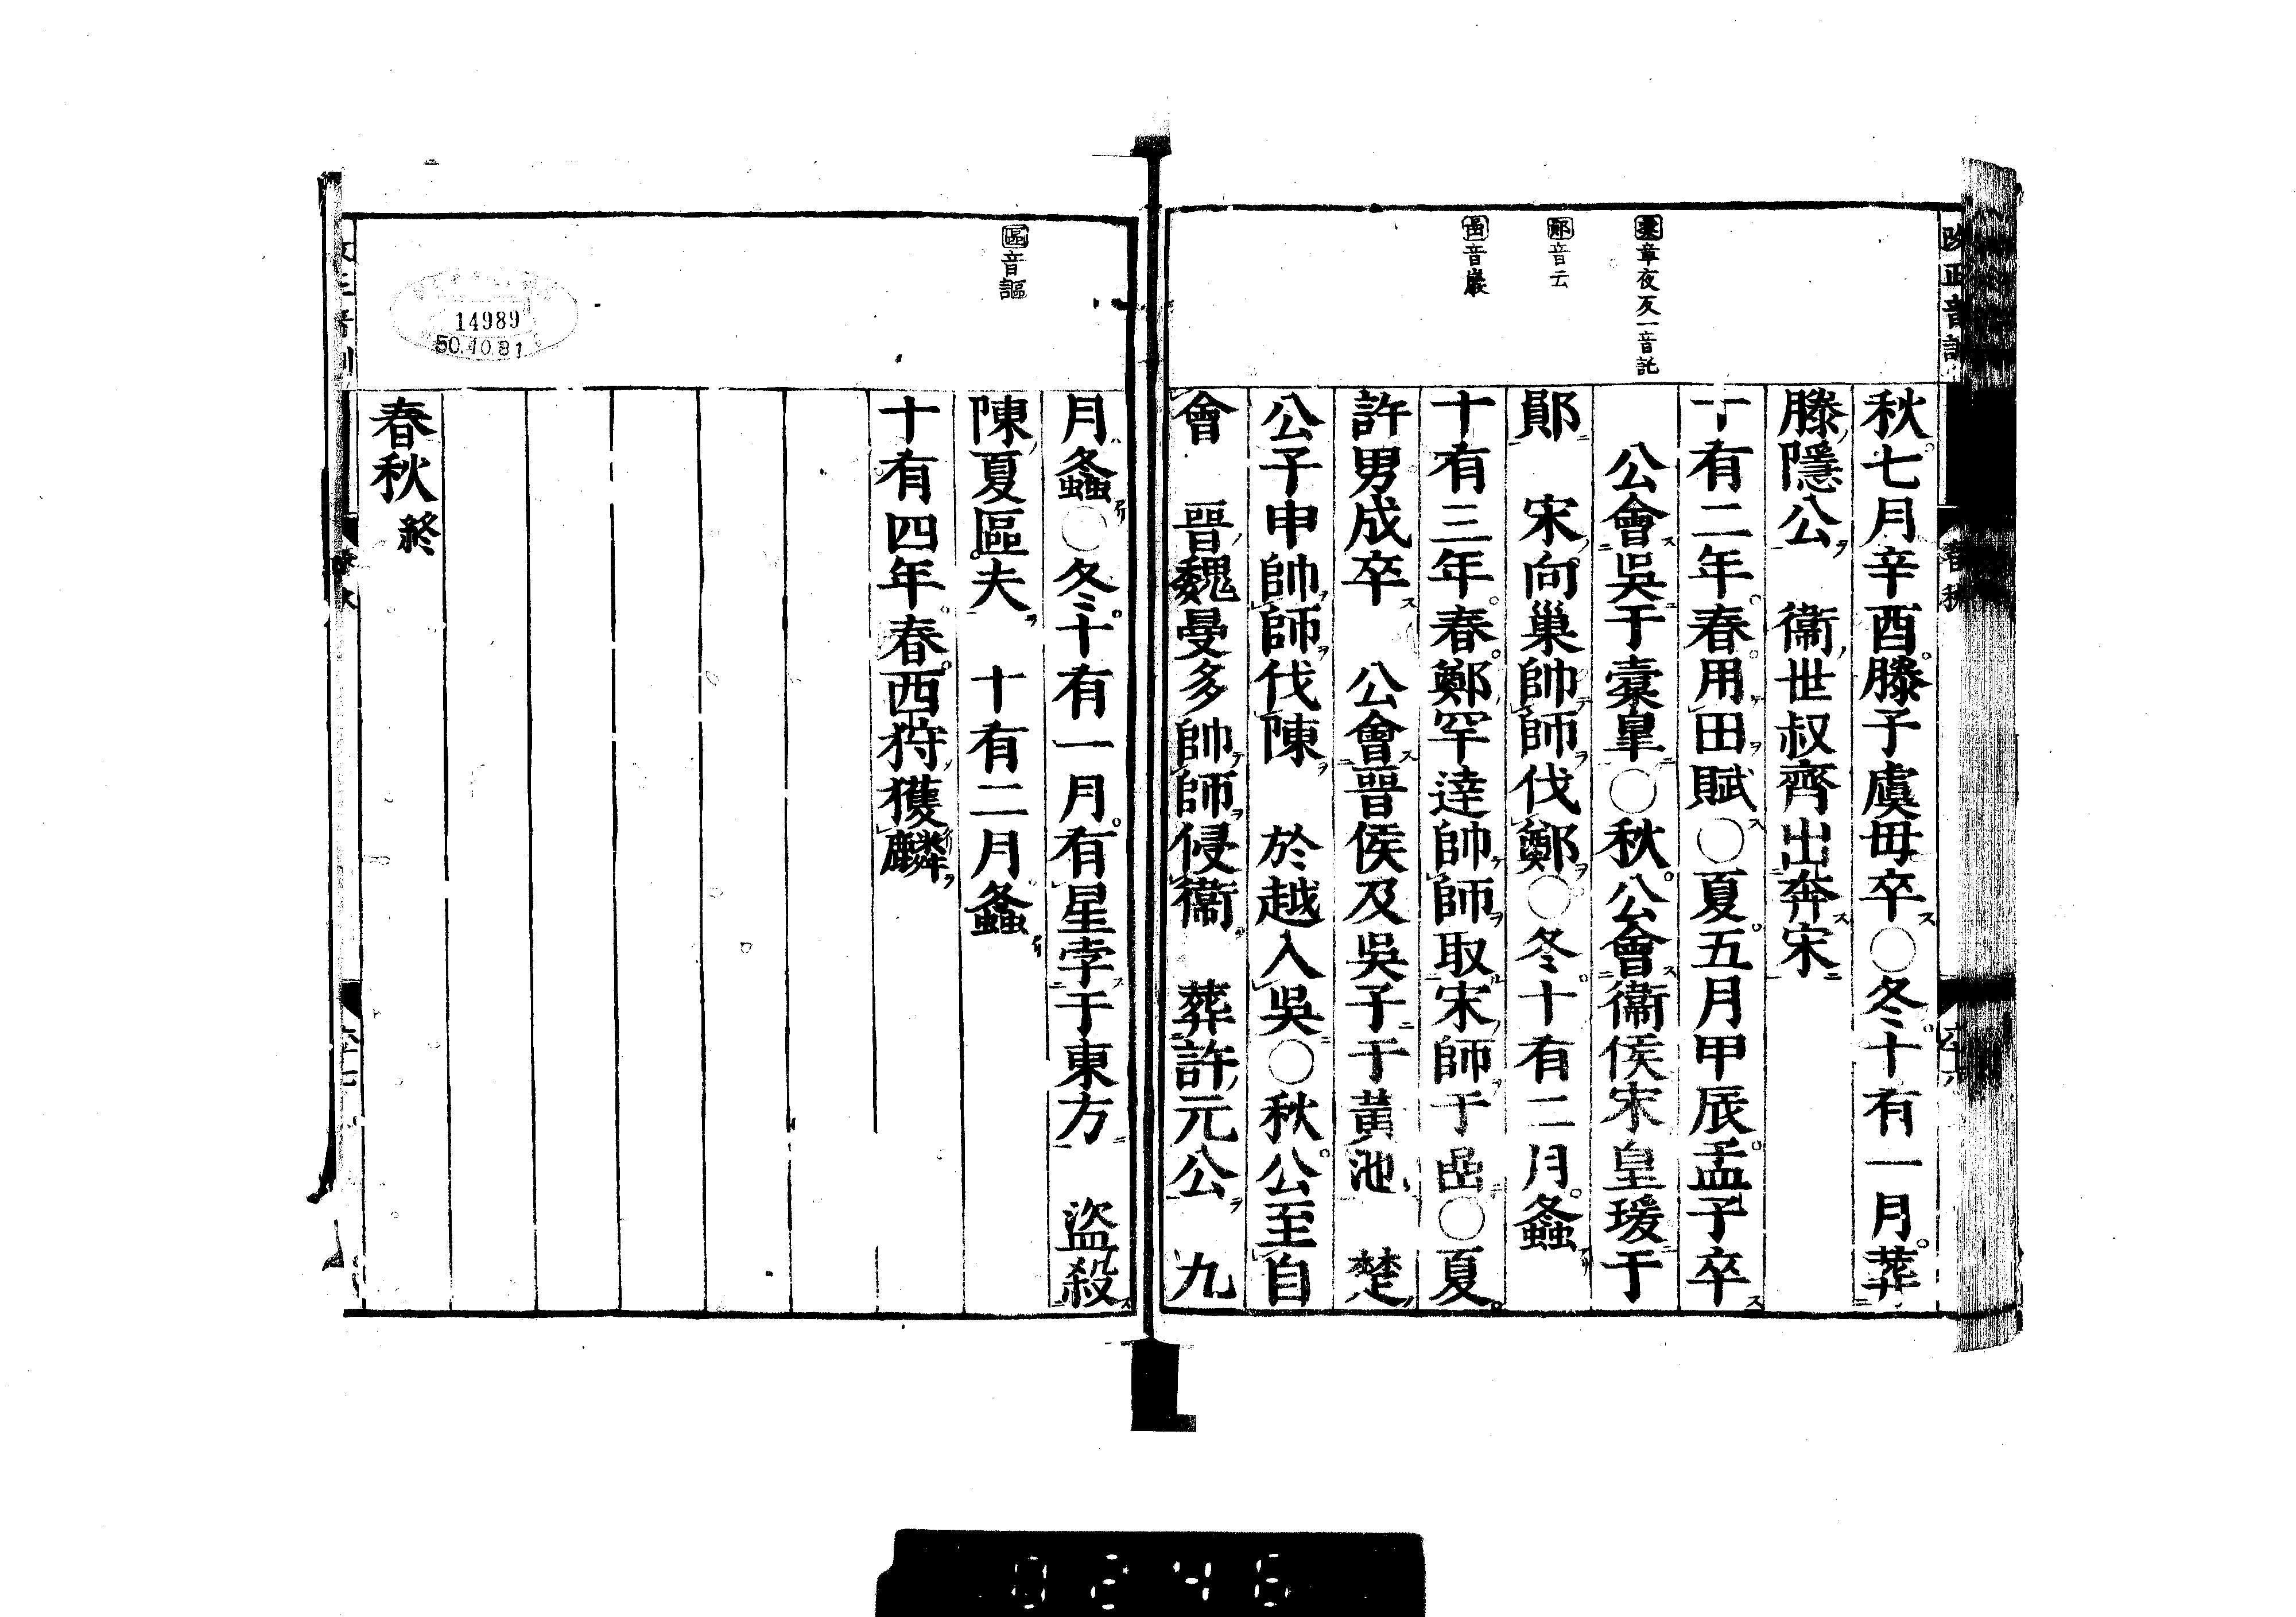 橐章夜反一音託
鄖音云
嵒音巖
秋七月辛酉滕子虞毋卒〇冬十有一月葬
滕隱公　衞世叔齊出奔宋
十有二年春用田賦〇夏五月甲辰孟子卒
公會吳于橐皐〇秋公會衞侯宋皇瑗于
鄖　宋向巢帥師伐鄭〇冬十有二月螽
十有三年春鄭罕達帥師取宋師于嵒〇夏
許男成卒　公會晉侯及吳子于黃池　楚
公子申帥師伐陳　於越入吳〇秋公至自
會　晉魏曼多帥師侵衞　葬許元公　九
區音謳
月螽〇冬十有一月有星孛于東方　盜殺
陳夏區夫　十有二月螽
十有四年春西狩獲麟
春秋終
14989
50.10.31
0246